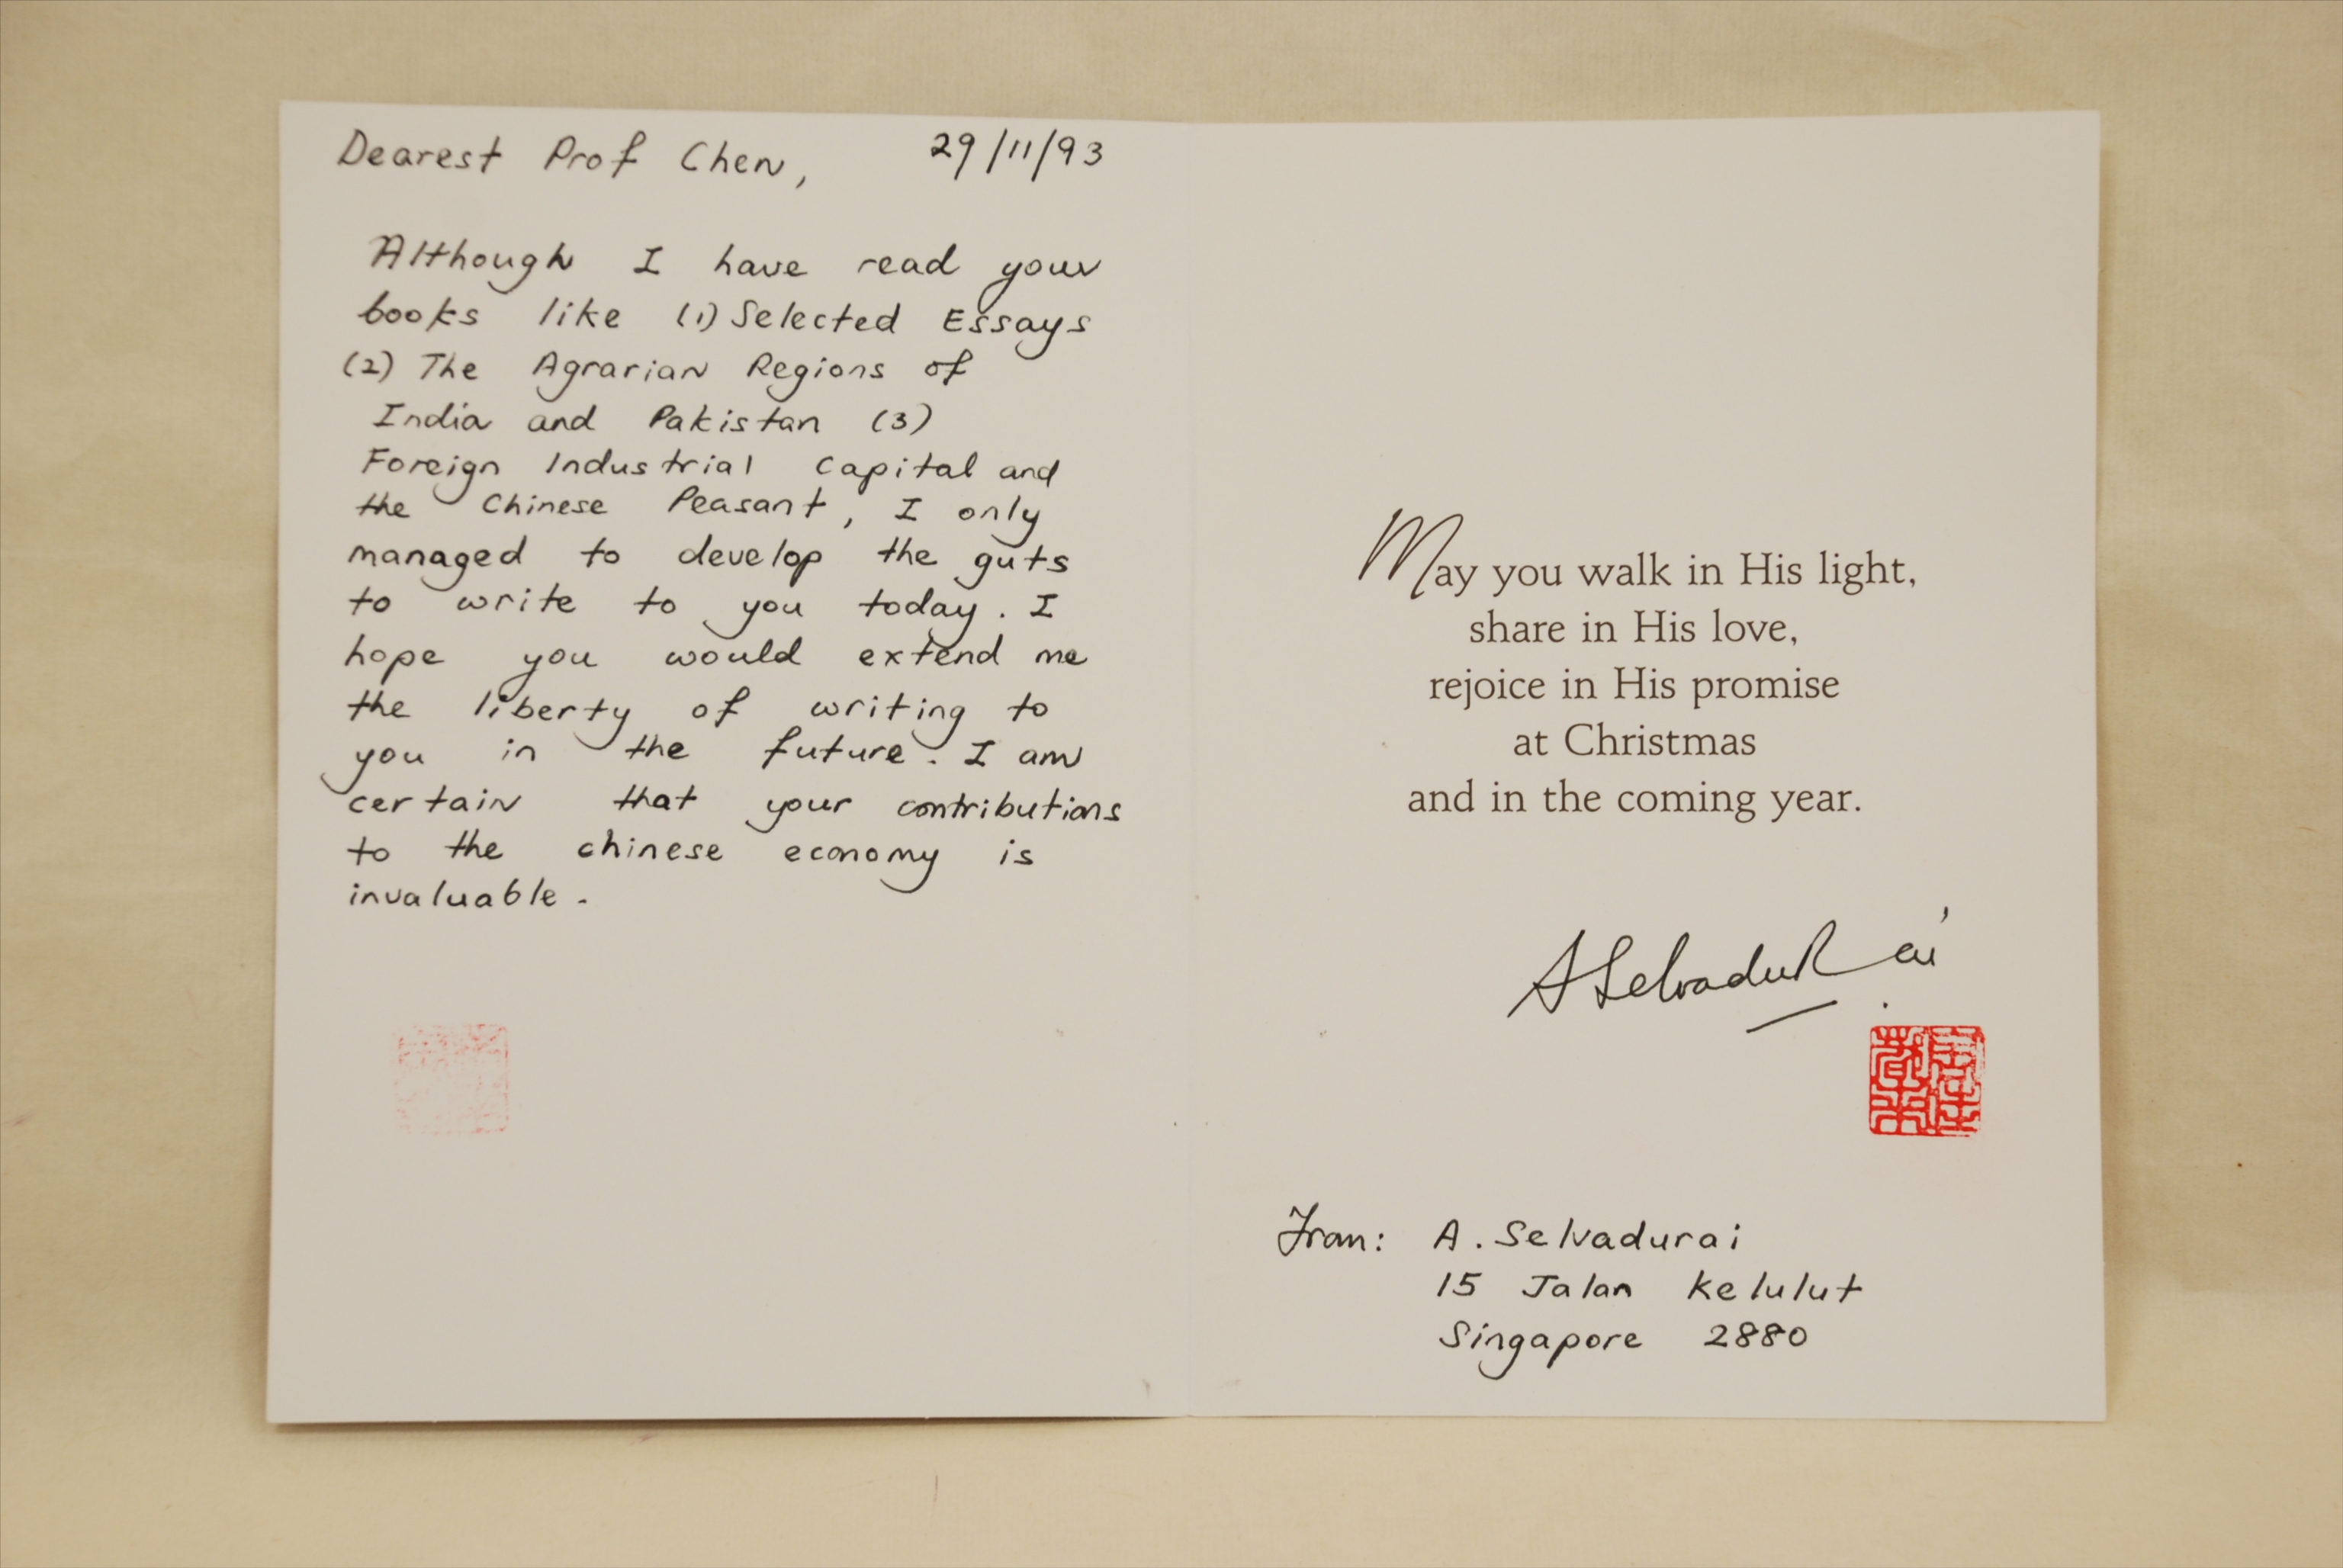 Dearest Prof Chen, 29/11/93
Although I have read your
books like (1) Selected Essays
(2) The Agrarian Regions of
India and Pakistan (3)
Foreign Industrial Capital and
the Chinese Peasant, I only
managed to develop the guts
to write to you today. I
hope you would extend me
the liberty of writing to
you in the future. I am
certain that your contributions
to the chinese economy is
invaluable.
May you walk in His light,
share in His love,
rejoice in His promise
at Christmas
and in the coming year.
A Selvadurai
From: A. Selvadurai
15 Jalan Kelulut
Singapore 2880